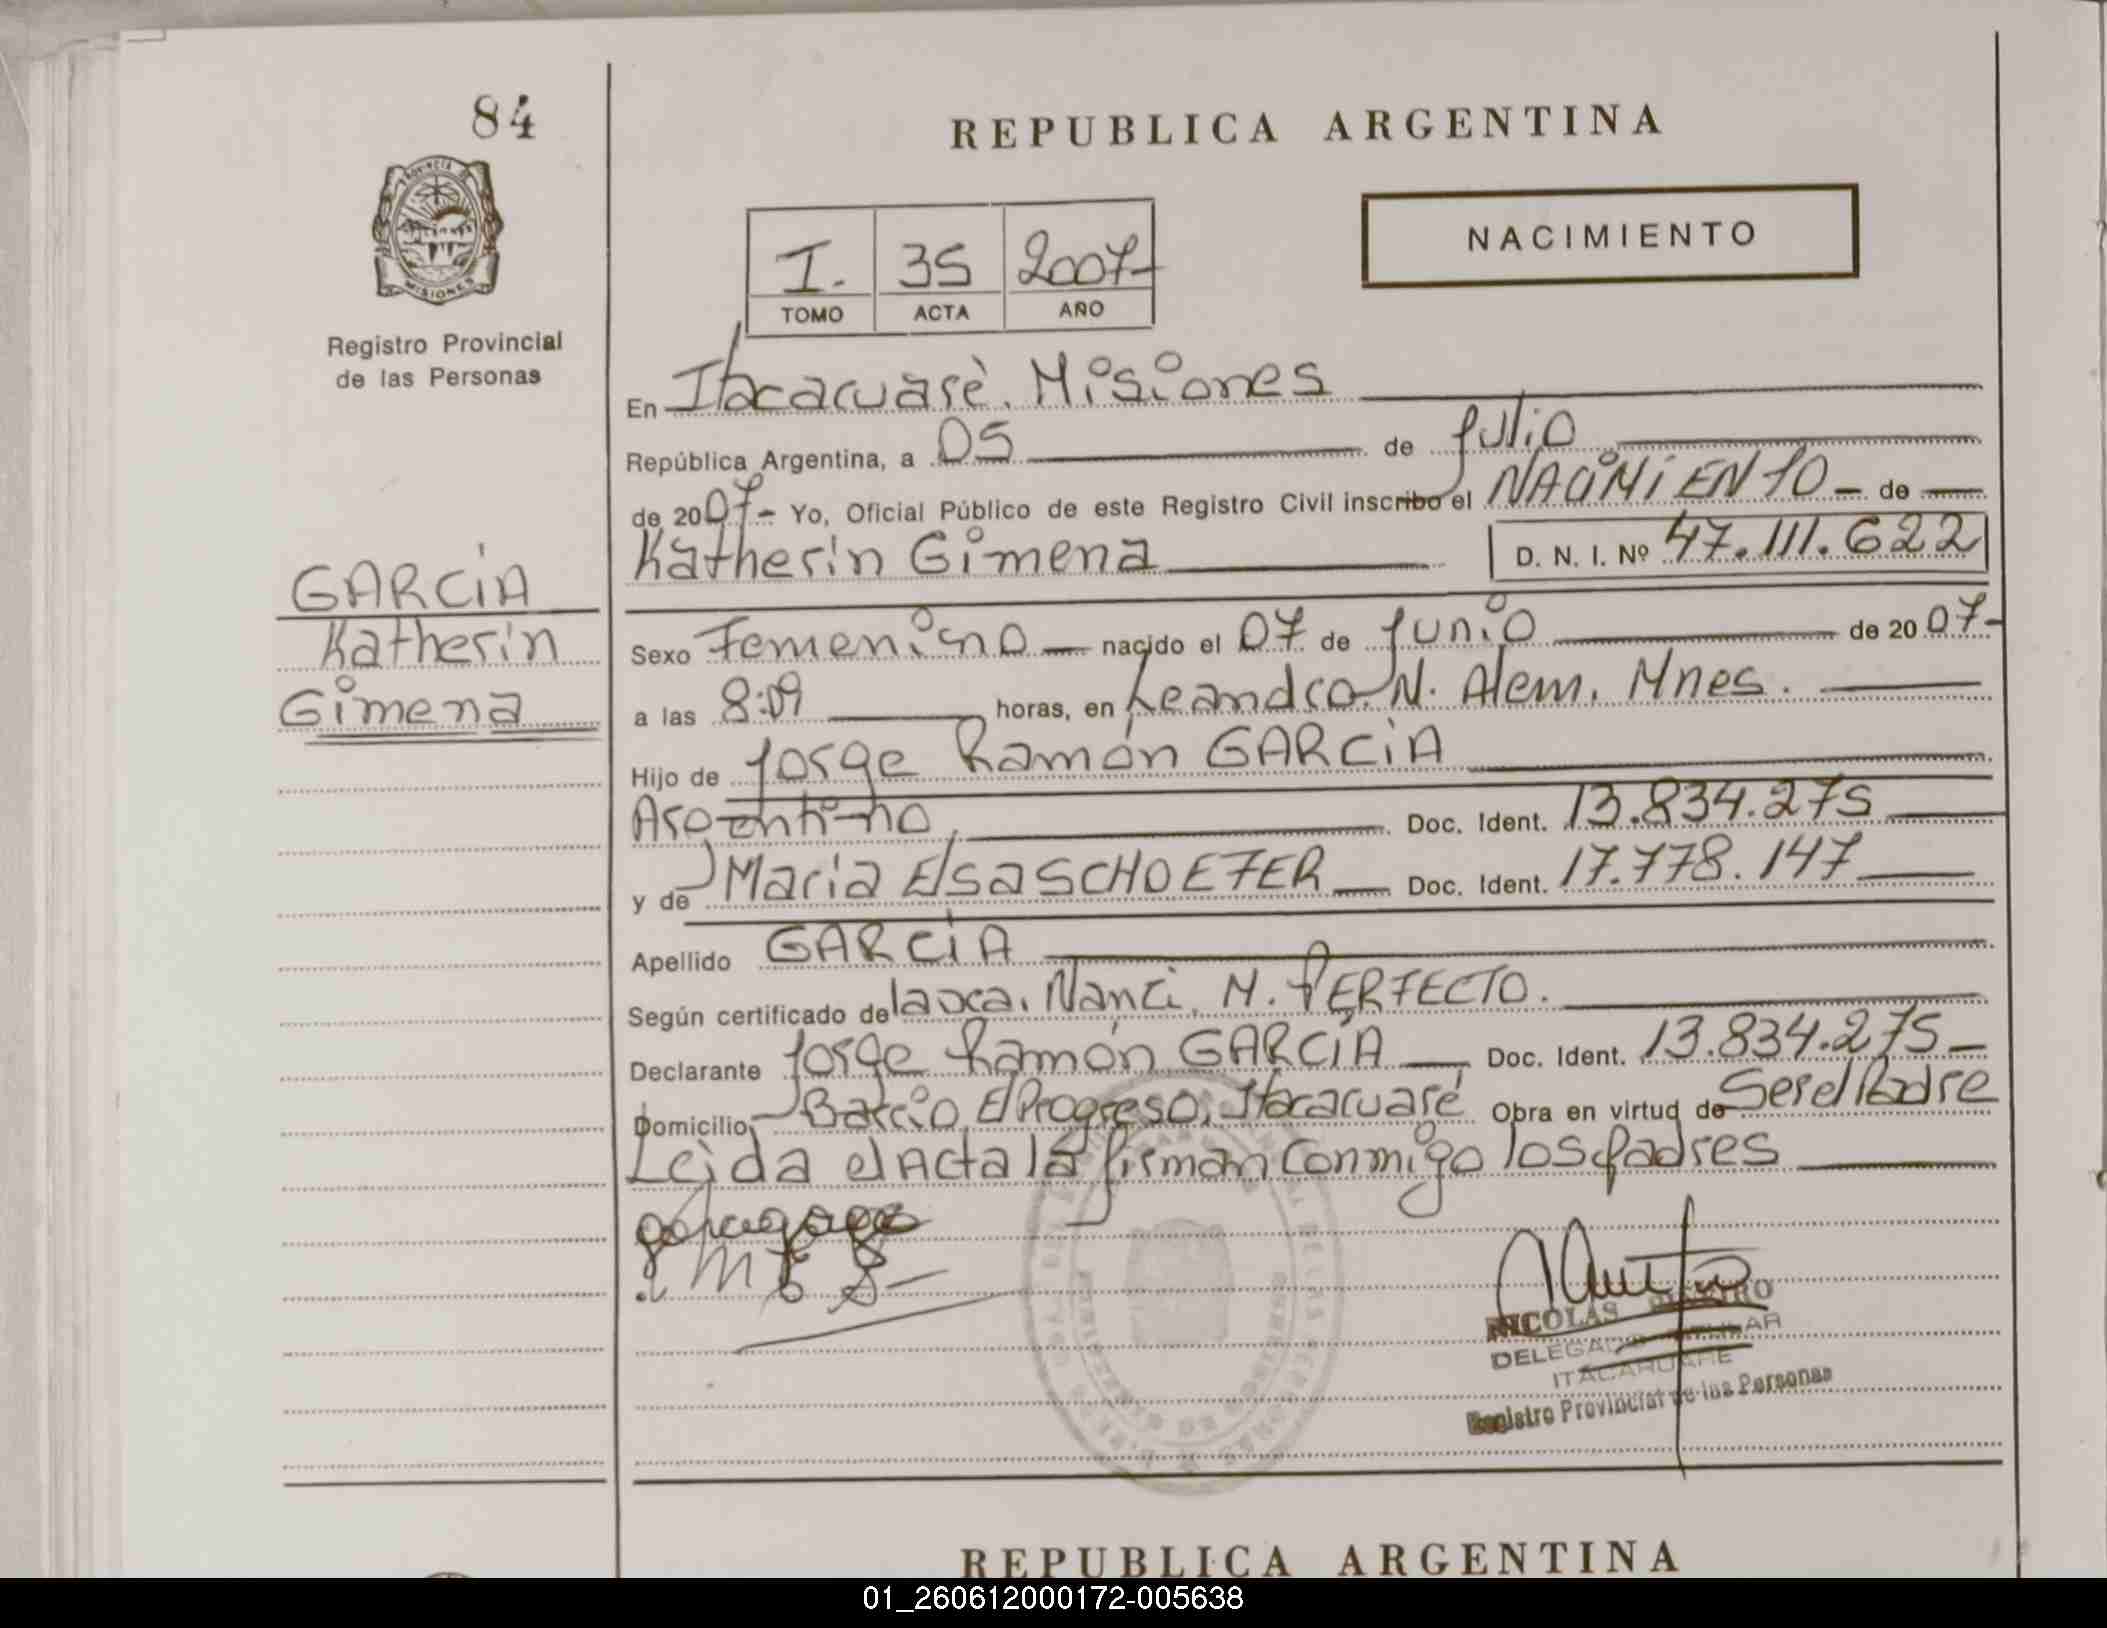 84
REPUBLICA ARGENTINA
PROVINCIA DE
MISIONES
Registro Provincial
de las Personas
NACIMIENTO
I. 35 2007-
TOMO ACTA AÑO
En Itacaruaré. Misiones
República Argentina, a 05 de Julio
de 2007- Yo, Oficial Público de este Registro Civil inscribo el NACIMIENTO - de
Katherin Gimena D. N. I. Nº 47.111.622
GARCIA
Katherin
Gimena
Sexo Femenino nacido el 07 de Junio de 20 07-
a las 8:09 horas, en Leandro. N. Alem. Mnes.
Hijo de Jorge Ramón GARCIA
Argentino Doc. Ident. 13.834.275
y de Maria Elsa SCHOEFER Doc. Ident. 17.778.147
Apellido GARCIA
Según certificado de la oca. Nanci. M. PERFECTO.
Declarante Jorge Ramón GARCIA Doc. Ident. 13.834.275
Domicilio Barrio El Progreso. Itacaruaré Obra en virtud de Ser el Padre
Leida el Acta la firman conmigo los Padres
M E S
NICOLAS
DELEGADO TITULAR
ITACARUARE
Registro Provincial de las Personas
REPUBLICA ARGENTINA
01_260612000172-005638